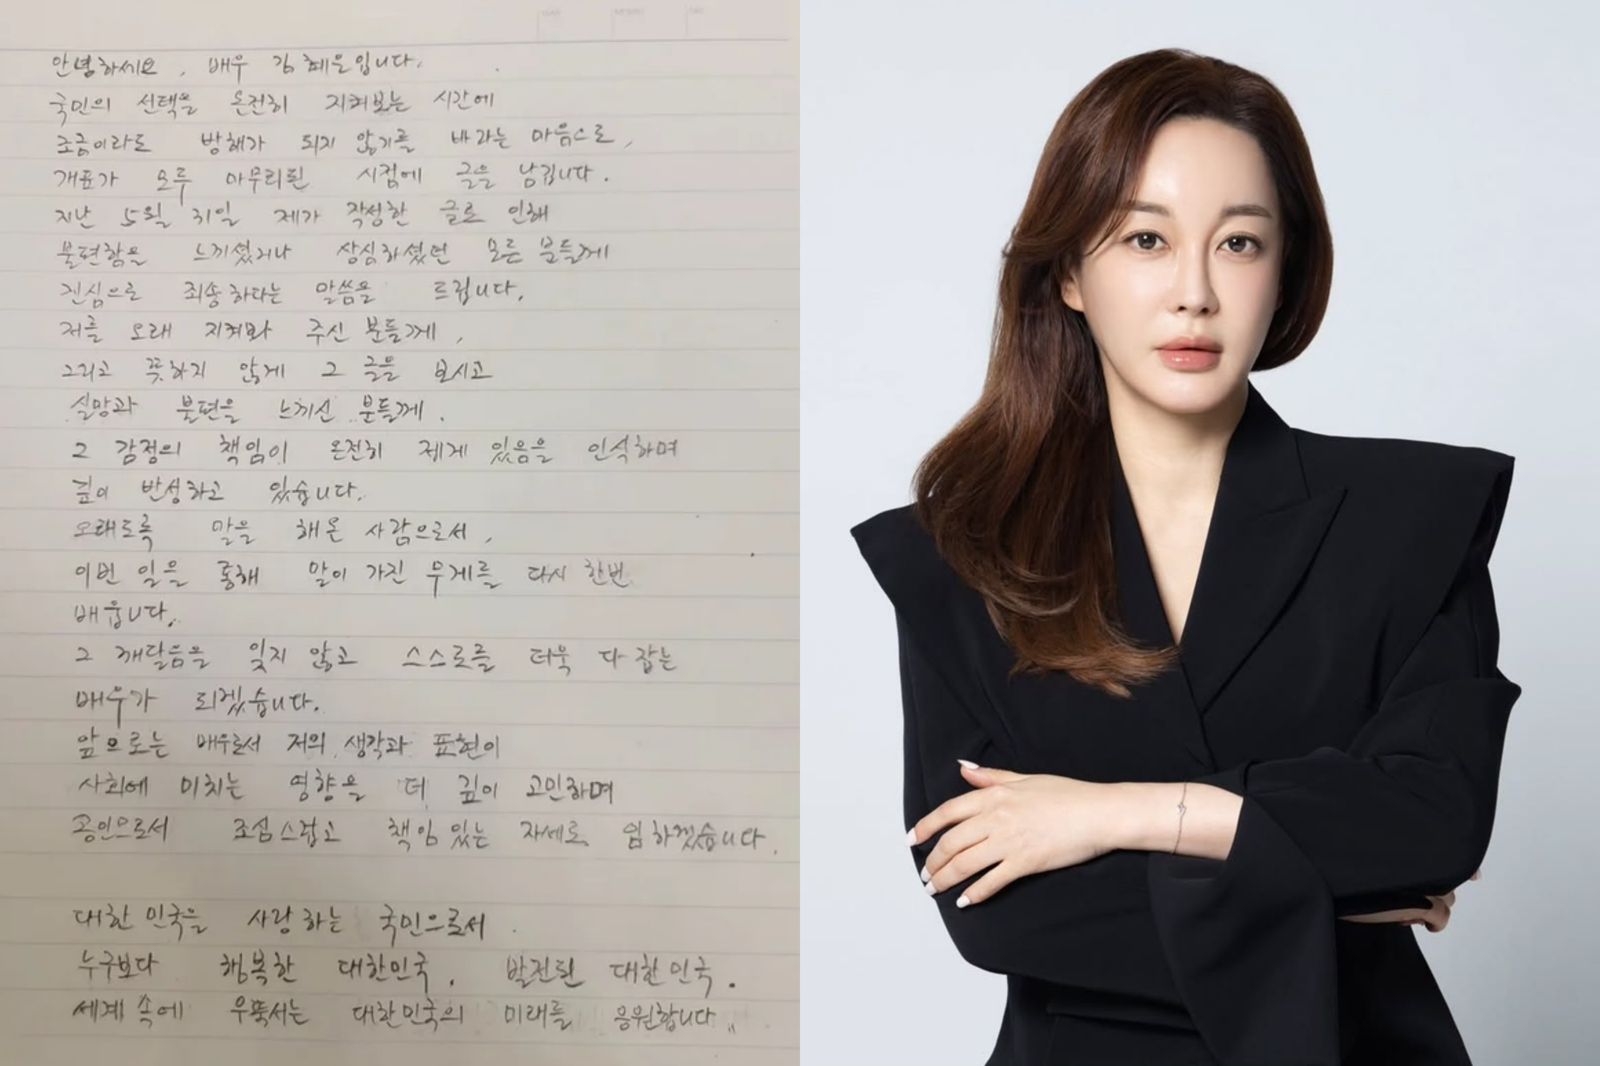 안녕하세요, 배우 김혜은입니다.
국민의 선택을 온전히 지켜보는 시간에
조금이라도 방해가 되지 않기를 바라는 마음으로,
개표가 모두 마무리된 시점에 글을 남깁니다.
지난 5월 31일 제가 작성한 글로 인해
불편함을 느끼셨거나 상심하셨던 모든 분들께
진심으로 죄송하다는 말씀을 드립니다.
저를 오래 지켜봐 주신 분들께,
그리고 뜻하지 않게 그 글을 보시고
실망과 불편을 느끼신 분들께.
그 감정의 책임이 온전히 제게 있음을 인식하며
깊이 반성하고 있습니다.
오래도록 말을 해온 사람으로서,
이번 일을 통해 말이 가진 무게를 다시 한번
배웁니다.
그 깨달음을 잊지 않고 스스로를 더욱 다잡는
배우가 되겠습니다.
앞으로는 배우로서 저의 생각과 표현이
사회에 미치는 영향을 더 깊이 고민하며
공인으로서 조심스럽고 책임있는 자세로 임하겠습니다.
대한민국을 사랑하는 국민으로서
누구보다 행복한 대한민국, 발전된 대한민국.
세계 속에 우뚝서는 대한민국의 미래를 응원합니다.